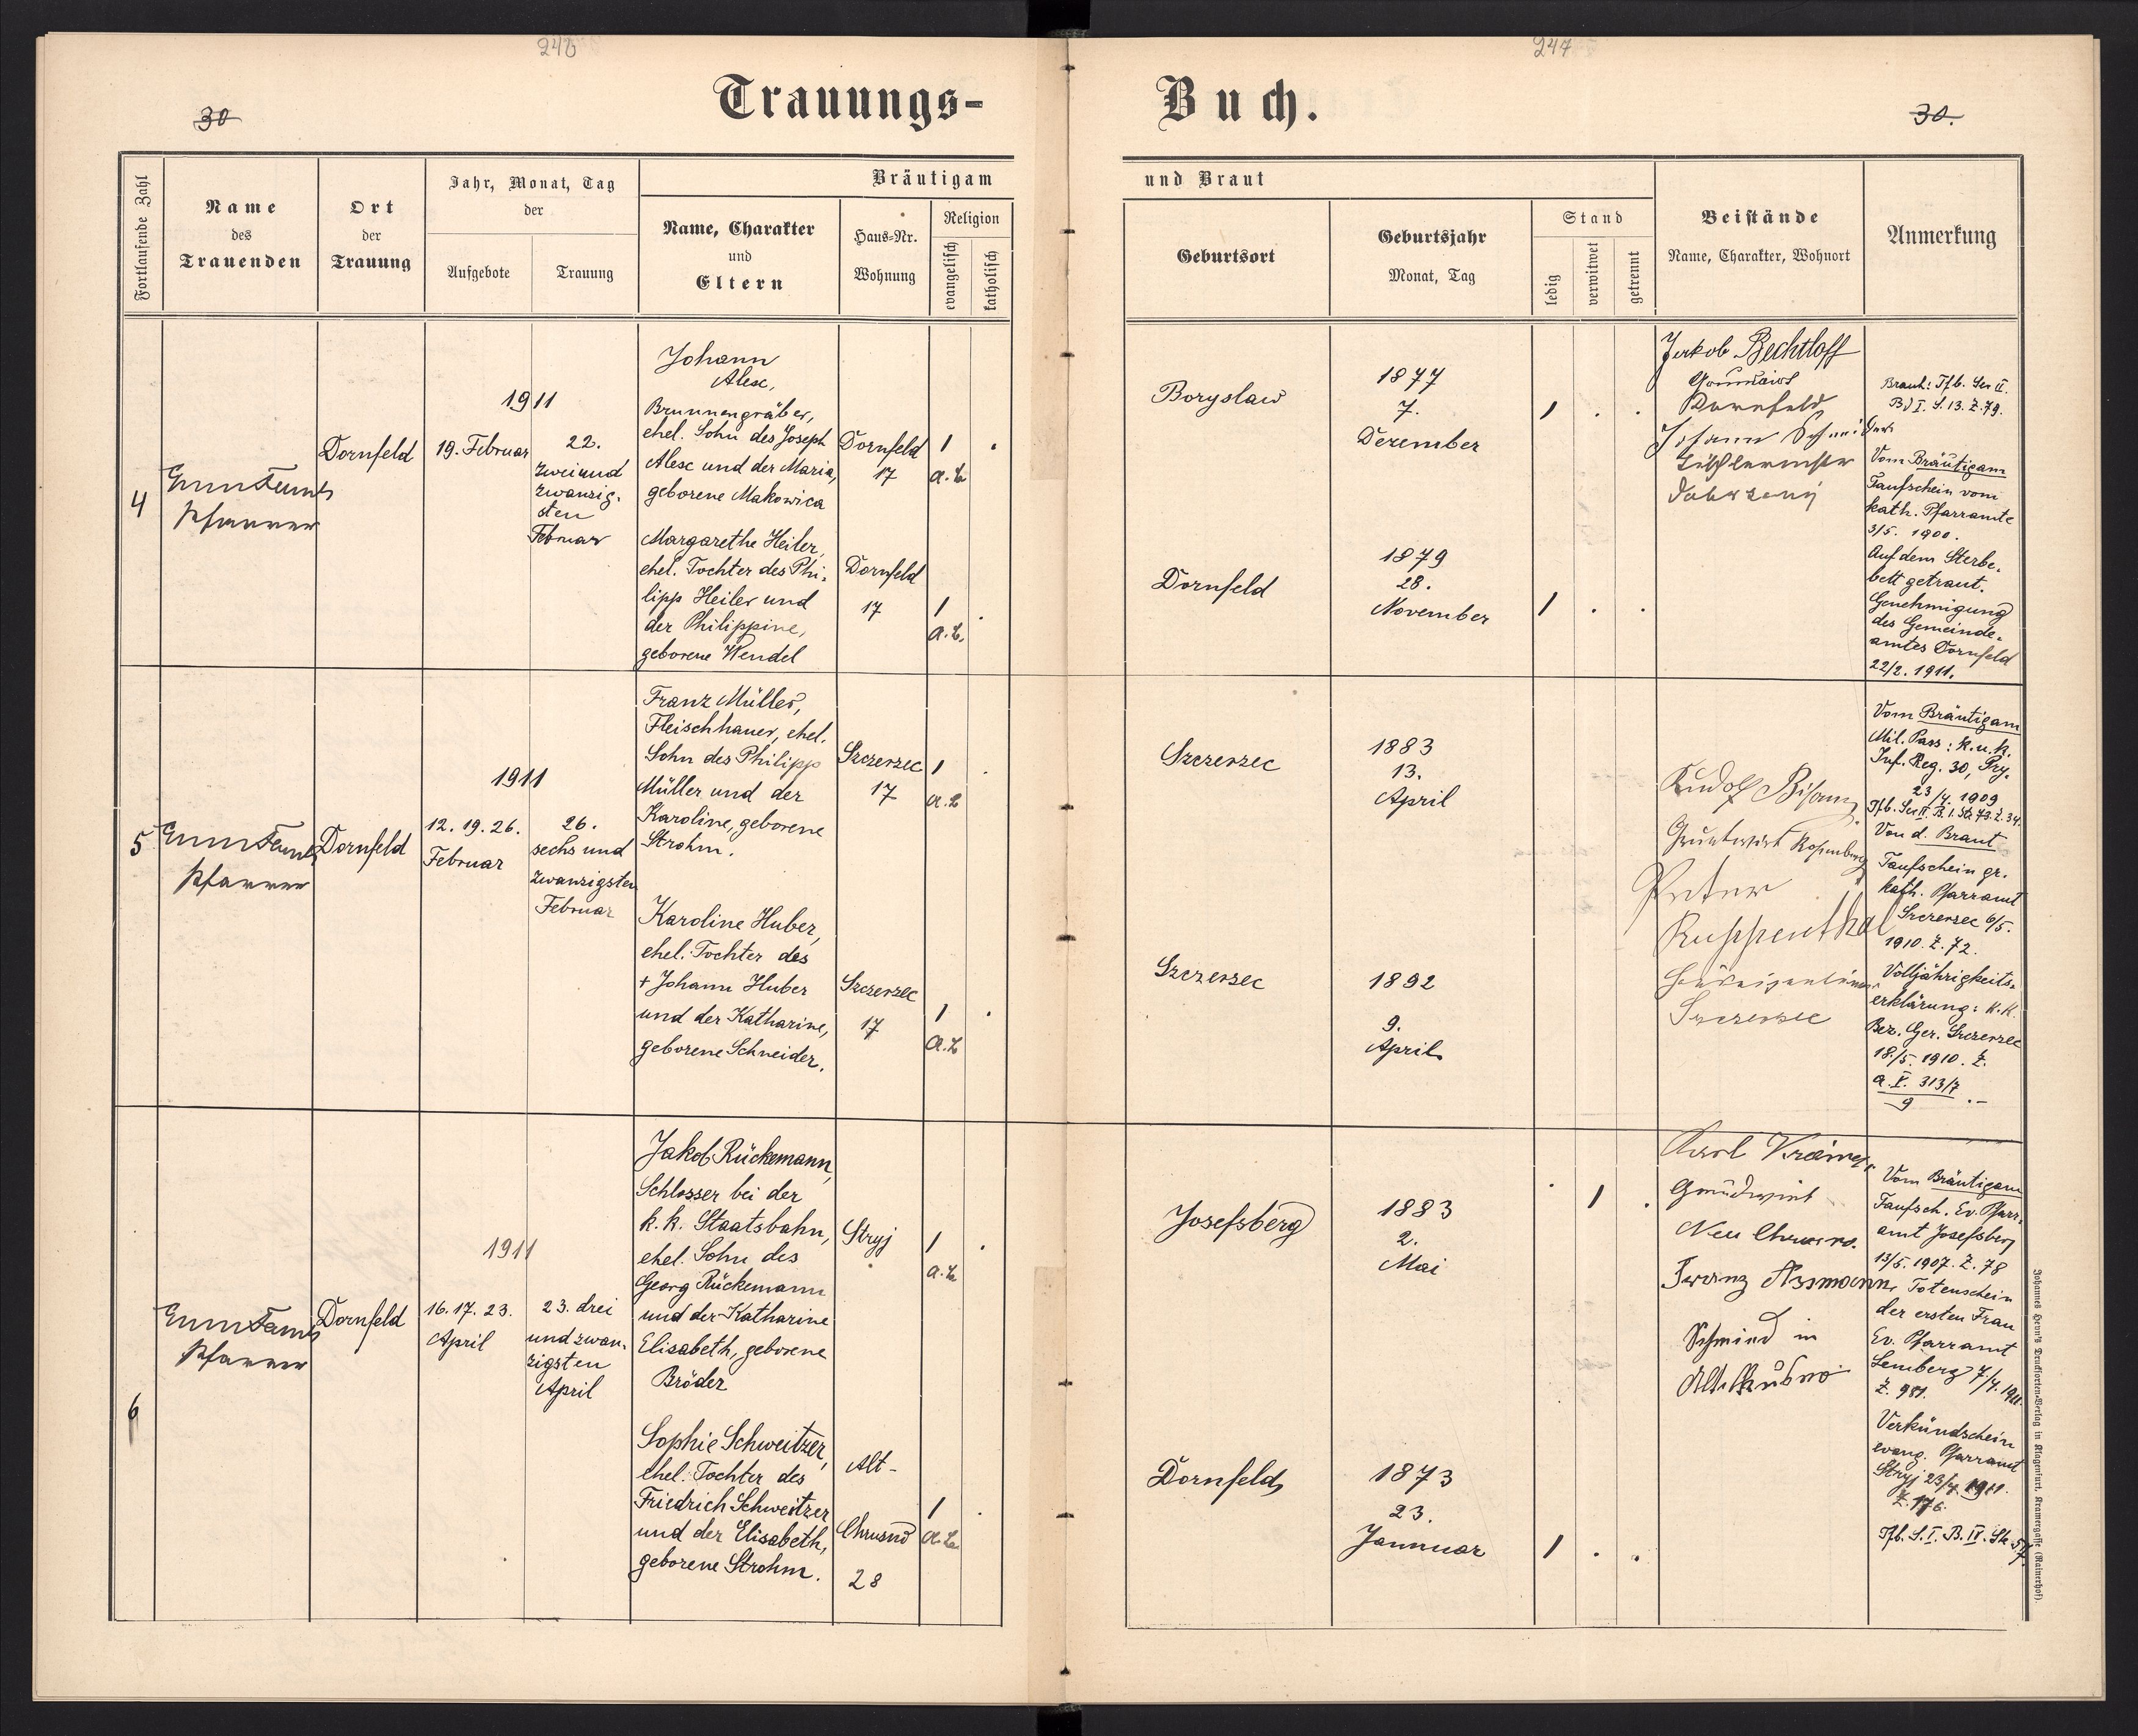 246
247
Trauungs-
Buch.
30
30.
Fortlaufende Zahl
Name
des
Trauenden
Ort
der
Trauung
Jahr, Monat, Tag
der
Aufgebote
Trauung
Bräutigam
Name, Charakter
und
Eltern
Haus-Nr.
Wohnung
Religion
evangelisch
katholisch
und Braut
Geburtsort
Geburtsjahr
Monat, Tag
Stand
ledig
verwitwet
getrennt
Beistände
Name, Charakter, Wohnort
Anmerkung
4
Pfarrer
Dornfeld
1911
19. Februar
22.
zweiund
zwanzig-
sten
Februar
Johann
Alex,
Brunnengräber,
ehel. Sohn des Joseph
Alex und der Maria,
geborene Makowica
Dornfeld
17
1
A.B.
Margarethe Heiler,
ehel. Tochter des Phi-
lipp Heiler und
der Philippine,
geborene Wendel
Dornfeld
17
1
A.B.
Boryslaw
1877
7.
Dezember
1 . .
Dornfeld
1879
28.
November
1 . .
Jakob Bechtloff
Dornfeld
Johann Schneider
Tischlermeister
Braut: Tfb. Ser II.
B) I. S. 13. Z. 79.
Vom Bräutigam
Taufschein vom
kath. Pfarramte
3/5. 1900.
Auf dem Sterbe-
bett getraut.
Genehmigung
des Gemeinde-
amtes Dornfeld
22/2. 1911.
5
Pfarrer
Dornfeld
1911
12. 19. 26.
Februar
26.
sechs und
zwanzigsten
Februar
Franz Müller,
Fleischhauer, ehel.
Sohn des Philipp
Müller und der
Karoline, geborene
Strohm.
Szczerzec
17
1
A.B
Karoline Huber,
ehel. Tochter des
+ Johann Huber
und der Katharine,
geborene Schneider.
Szczerzec
17
1
A.B
Szczerzec
1883
13.
April
Szczerzec
1892
9.
April
Rudolf Bisanz
Grundwirt Rosenberg
Peter
Ruppenthal
Szczerzec
Vom Bräutigam
Mil. Pass: k.u.k.
Inf. Reg. 30,
23/4. 1909
Tfb. Ser II. B. I. St. 73. Z. 34.
Von d. Braut
Taufschein gr.
kath. Pfarramt
Szczerzec 6/5.
1910. Z. 72.
Volljährigkeits-
erklärung: K.K.
Bez. Ger. Szczerzec
18/5. 1910. Z.
313/7
9
6
Pfarrer
Dornfeld
1911
16. 17. 23.
April
23. drei
und zwan-
zigsten
April
Jakob Rückemann,
Schlosser bei der
k.k. Staatsbahn,
ehel. Sohn des
Georg Rückemann
und der Katharine
Elisabeth, geborene
Bröder
Stryj
1
A.B
Sophie Schweitzer,
ehel. Tochter des
Friedrich Schweitzer
und der Elisabeth,
geborene Strohm.
Alt-
Chrusno
28
1
A.B.
Josefsberg
1883
2.
Mai
. 1 .
Dornfeld
1873
23.
Jannuar
1 . .
Karl Krämer
Grundwirt
Neu Chrusno.
Franz Assmann
Schmied in
Vom Bräutigam
Taufsch. Ev. Pfarr-
amt Josefsberg
13/5. 1907. Z. 78
Totenschein
der ersten Frau
Ev. Pfarramt
Lemberg 7/4. 1911.
Z. 981.
Verkündschein
evang. Pfarramt
Stryj 23/4. 1911.
Z. 176.
Tfb. S. I. B. IV. St. 57.
Johannes Heyn's Drucksorten-Verlag in Klagenfurt, Kramergasse (Rainerhof).